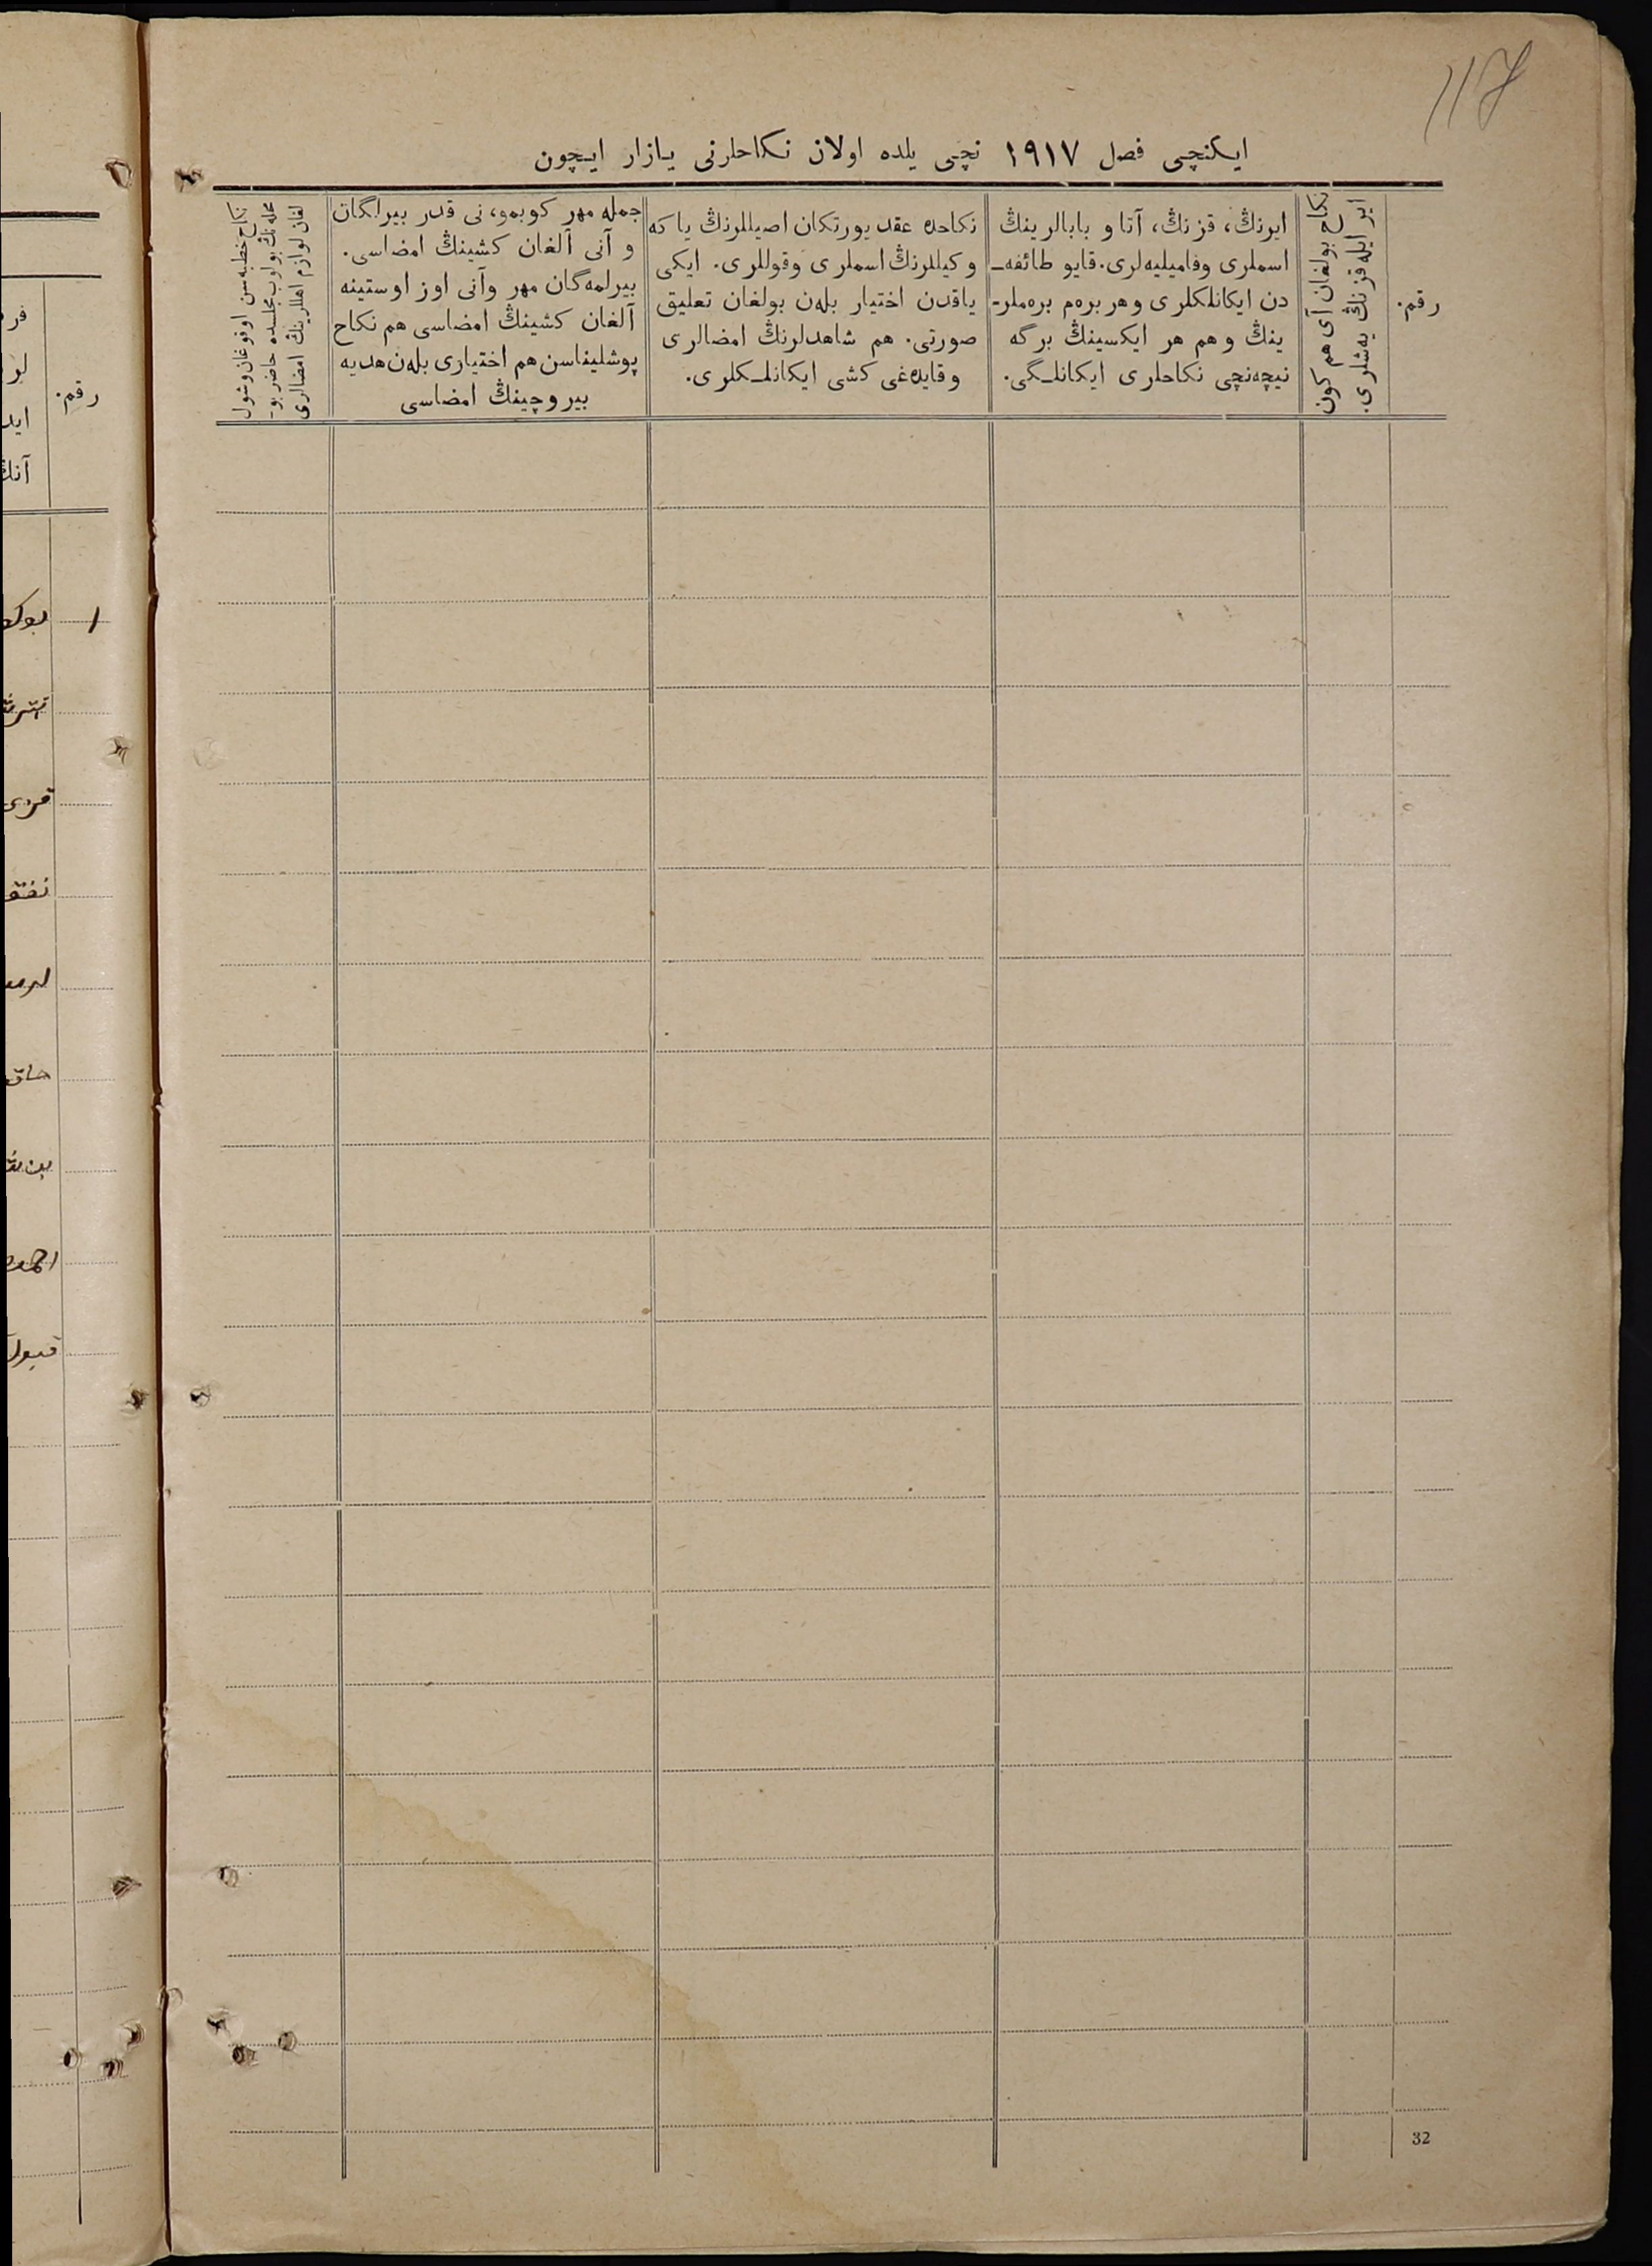 117
ایکنچی فصل ۱۹۱۷ نچی یلده اولان نکاحلرنی یازار ایچون
رقم.
نکاح بولغان آی هم کون
ایر ایله قزنڭ یه‌شلری.
ایرنڭ، قزنڭ، آتا و بابالرینڭ
اسملری وفامیلیه‌لری. قایو طائفه‌ـ
دن ایکانلکلری وهر بره‌م بره‌ملر-
ینڭ و هم هر ایکسینڭ برگه
نیچه‌نچی نکاحلری ایکانلـگی.
نکاحده عقد یورتکان اصیللرنڭ یا که
وکیللرنڭ اسملری وقوللری. ایکی
یاقدن اختیار بله‌ن بولغان تعلیق
صورتی. هم شاهدلرنڭ امضالری
وقایده‌غی کشی ایکانلـکلری.
جمله مهر کوبمو، نی قدر بیرلگان
و آنی آلغان کشینڭ امضاسی.
بیرلمه‌گان مهر وآنی اوز اوستینه
آلغان کشینڭ امضاسی هم نکاح
پوشلیناسن هم اختیاری بله‌ن هدیه
بیروچینڭ امضاسی
نکاح خطبه‌سن اوقوغان وشول
محله‌نڭ بولوب مجلسده حاضر بو-
لغان لوازم اهللرینڭ امضالری
32
رقم.
آنڭ
۱